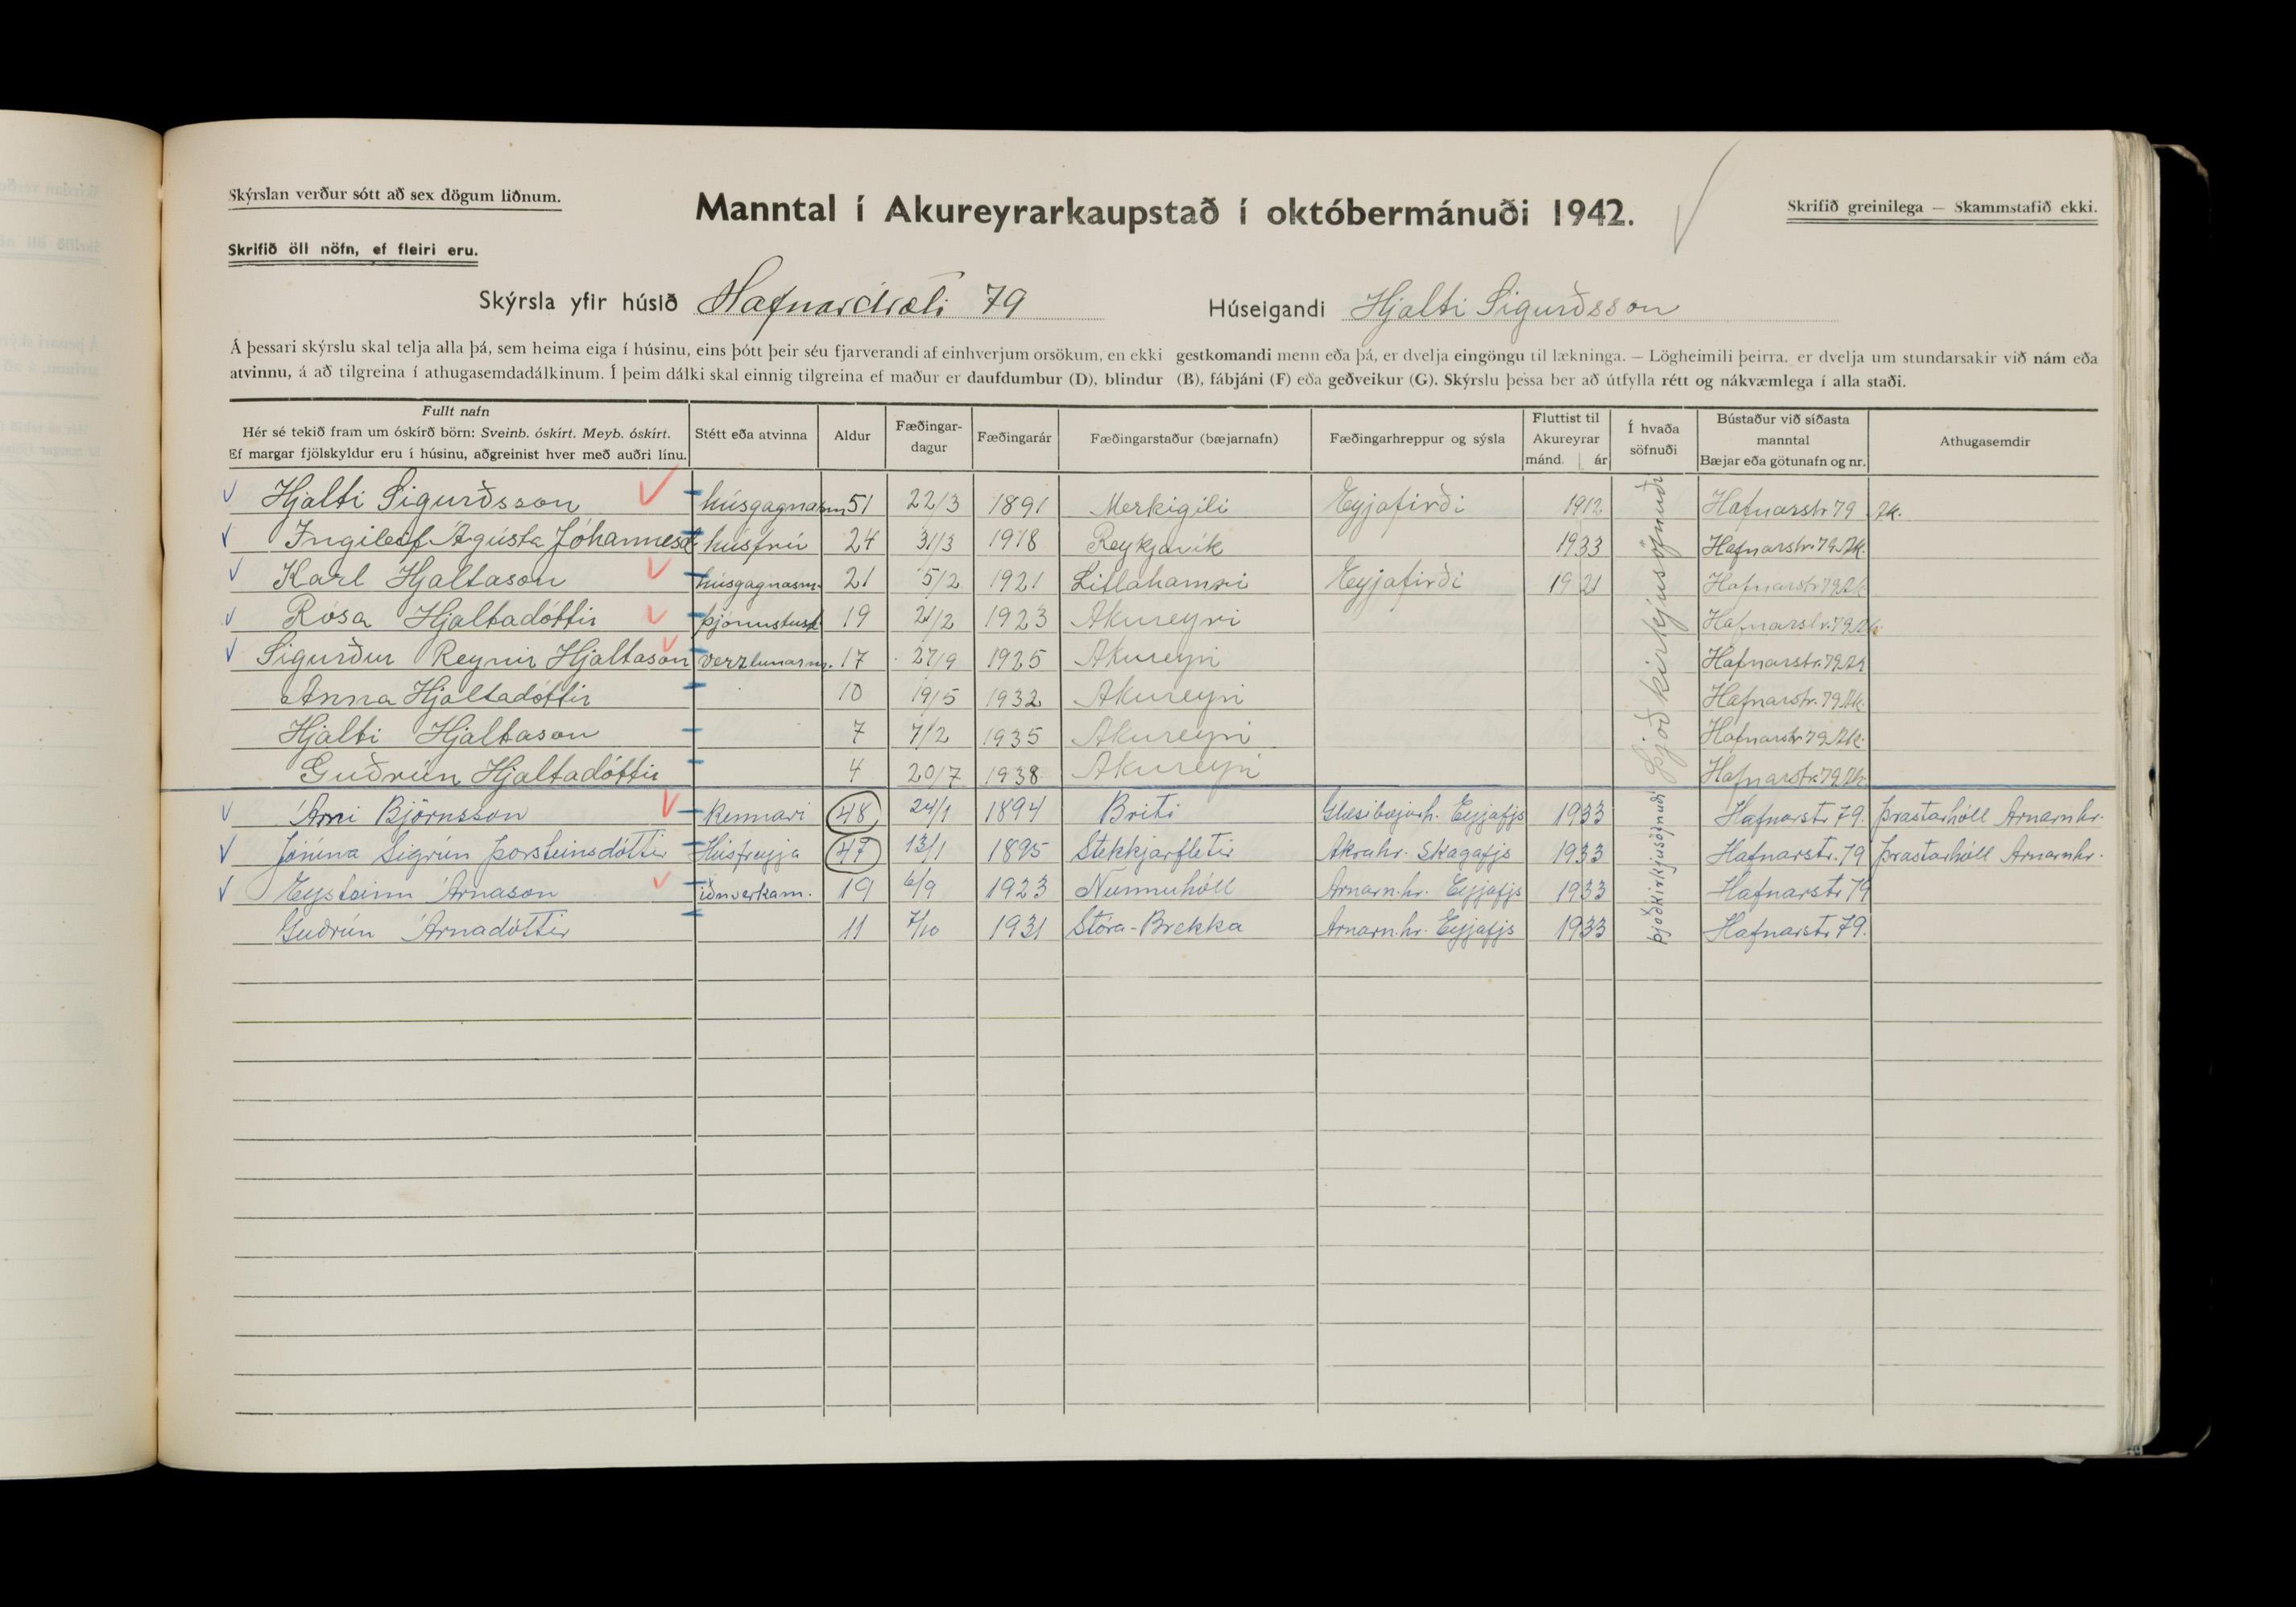 Skýrslan verður sótt að sex dögum liðnum.
Manntal í Akureyrarkaupstað í októbermánuði 1942.
Skrifið greinilega — Skammstafið ekki.
Skrifið öll nöfn, ef fleiri eru.
Skýrsla yfir húsið Hafnarstræti 79 Húseigandi Hjalti Sigurðsson
Á þessari skýrslu skal telja alla þá, sem heima eiga í húsinu, eins þótt þeir séu fjarverandi af einhverjum orsökum, en ekki gestkomandi menn eða þá, er dvelja eingöngu til lækninga. — Lögheimili þeirra, er dvelja um stundarsakir við nám eða
atvinnu, á að tilgreina í athugasemdadálkinum. Í þeim dálki skal einnig tilgreina ef maður er daufdumbur (D), blindur (B), fábjáni (F) eða geðveikur (G). Skýrslu þessa ber að útfylla rétt og nákvæmlega í alla staði.
Fullt nafn
Hér sé tekið fram um óskírð börn: Sveinb. óskírt. Meyb. óskírt.
Ef margar fjölskyldur eru í húsinu, aðgreinist hver með auðri línu.
Stétt eða atvinna
Aldur
Fæðingar-
dagur
Fæðingarár
Fæðingarstaður (bæjarnafn)
Fæðingarhreppur og sýsla
Fluttist til
Akureyrar
mánd. ár
Í hvaða
söfnuði
Bústaður við síðasta
manntal
Bæjar eða götunafn og nr.
Athugasemdir
Hjalti Sigurðsson húsgagnasm 51 22/3 1891 Merkigili Eyjafirði 1912 Hafnarstr 79 Ak.
Ingileif Ágústa Jóhannesd húsfrú 24 31/3 1918 Reykjavík 1933 Hafnarstr. 79 Ak.
Karl Hjaltason húsgagnasm. 21 5/2 1921 Litlahamri Eyjafirði 1921 Hafnarstr 79 Ak
Rósa Hjaltadóttir þjónustust 19 21/2 1923 Akureyri Hafnarstr. 79 Ak.
Sigurður Reynir Hjaltason verzlunarm. 17 27/9 1925 Akureyri Hafnarstr. 79 Ak
Anna Hjaltadóttir 10 19/5 1932 Akureyri Hafnarstr. 79 Ak.
Hjalti Hjaltason 7 7/2 1935 Akureyri Hafnarstr 79 Ak.
Guðrún Hjaltadóttir 4 20/7 1938 Akureyri Hafnarstr. 79 Ak.
Þjóðkirkjusöfnuði
Árni Björnsson Kennari 48 24/1 1894 Briti Glæsibæjarh. Eyjafjs 1933 Hafnarstr 79. Þrastarhóll Arnarnhr.
Jónína Sigrún Þorsteinsdóttir Húsfreyja 47 13/1 1895 Stekkjarfletir Akrahr. Skagafjs 1933 Hafnarstr. 79 Þrastarhóll Arnarnhr.
Eysteinn Árnason iðnverkam. 19 6/9 1923 Nunnuhóll Arnarn.hr. Eyjafjs 1933 Hafnarstr 79
Guðrún Árnadóttir 11 7/10 1931 Stóra-Brekka Arnarn.hr. Eyjafjs 1933 Hafnarstr 79.
þjóðkirkjusöfnuði